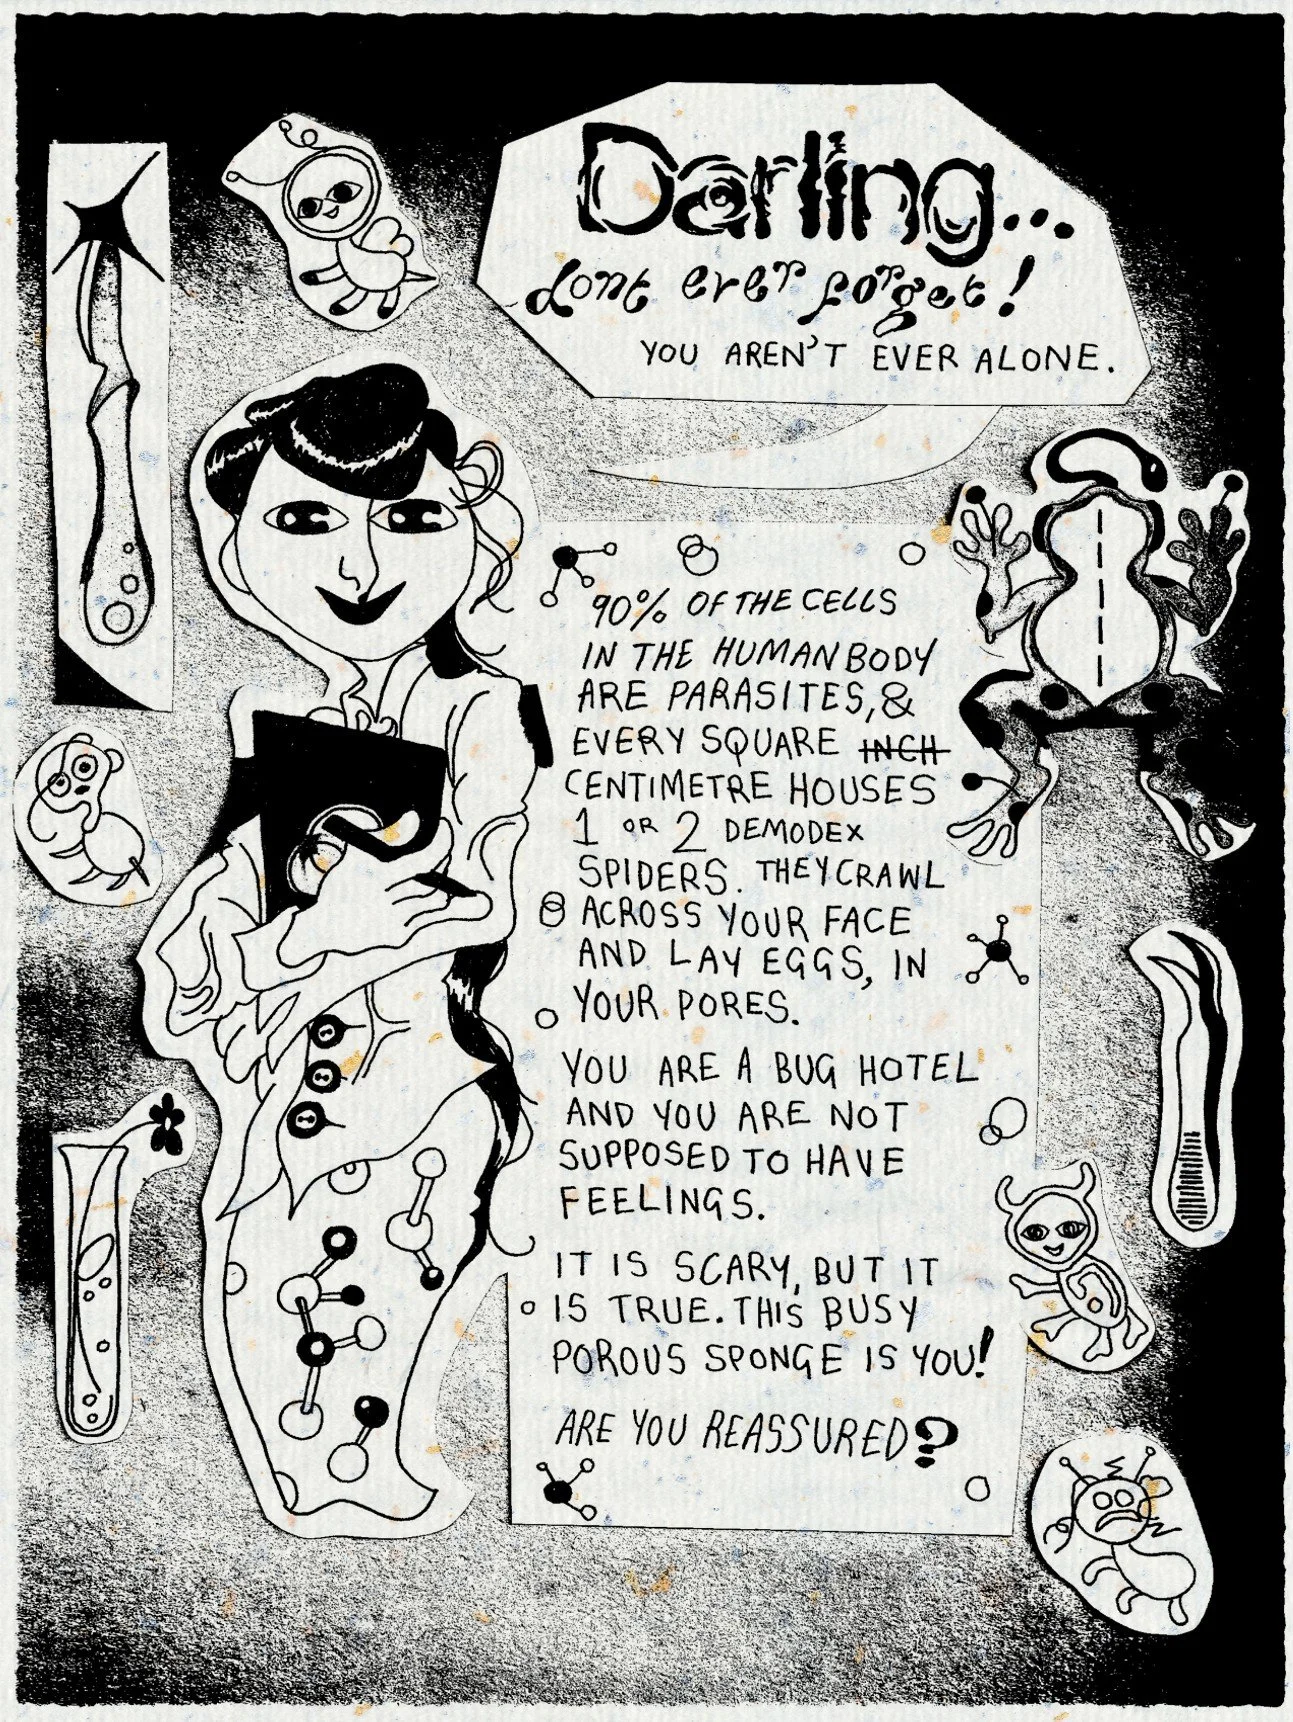 Darling...
dont ever forget!
YOU AREN'T EVER ALONE.
90% OF THE CELLS
IN THE HUMAN BODY
ARE PARASITES, &
EVERY SQUARE INCH
CENTIMETRE HOUSES
1 OR 2 DEMODEX
SPIDERS. THEY CRAWL
ACROSS YOUR FACE
AND LAY EGGS, IN
YOUR PORES.
YOU ARE A BUG HOTEL
AND YOU ARE NOT
SUPPOSED TO HAVE
FEELINGS.
IT IS SCARY, BUT IT
IS TRUE. THIS BUSY
POROUS SPONGE IS YOU!
ARE YOU REASSURED?